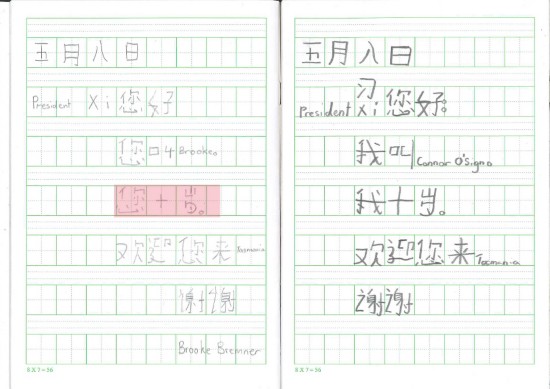 五月八日
President Xi 您好
您叫 Brooke。
您十岁。
欢迎您来 Tasmania
谢谢
Brooke Bremner
8X7=56
五月八日
习
President Xi 您好。
我叫 Connor O'signo
我十岁。
欢迎您来 Tasmania
谢谢
8X7=56